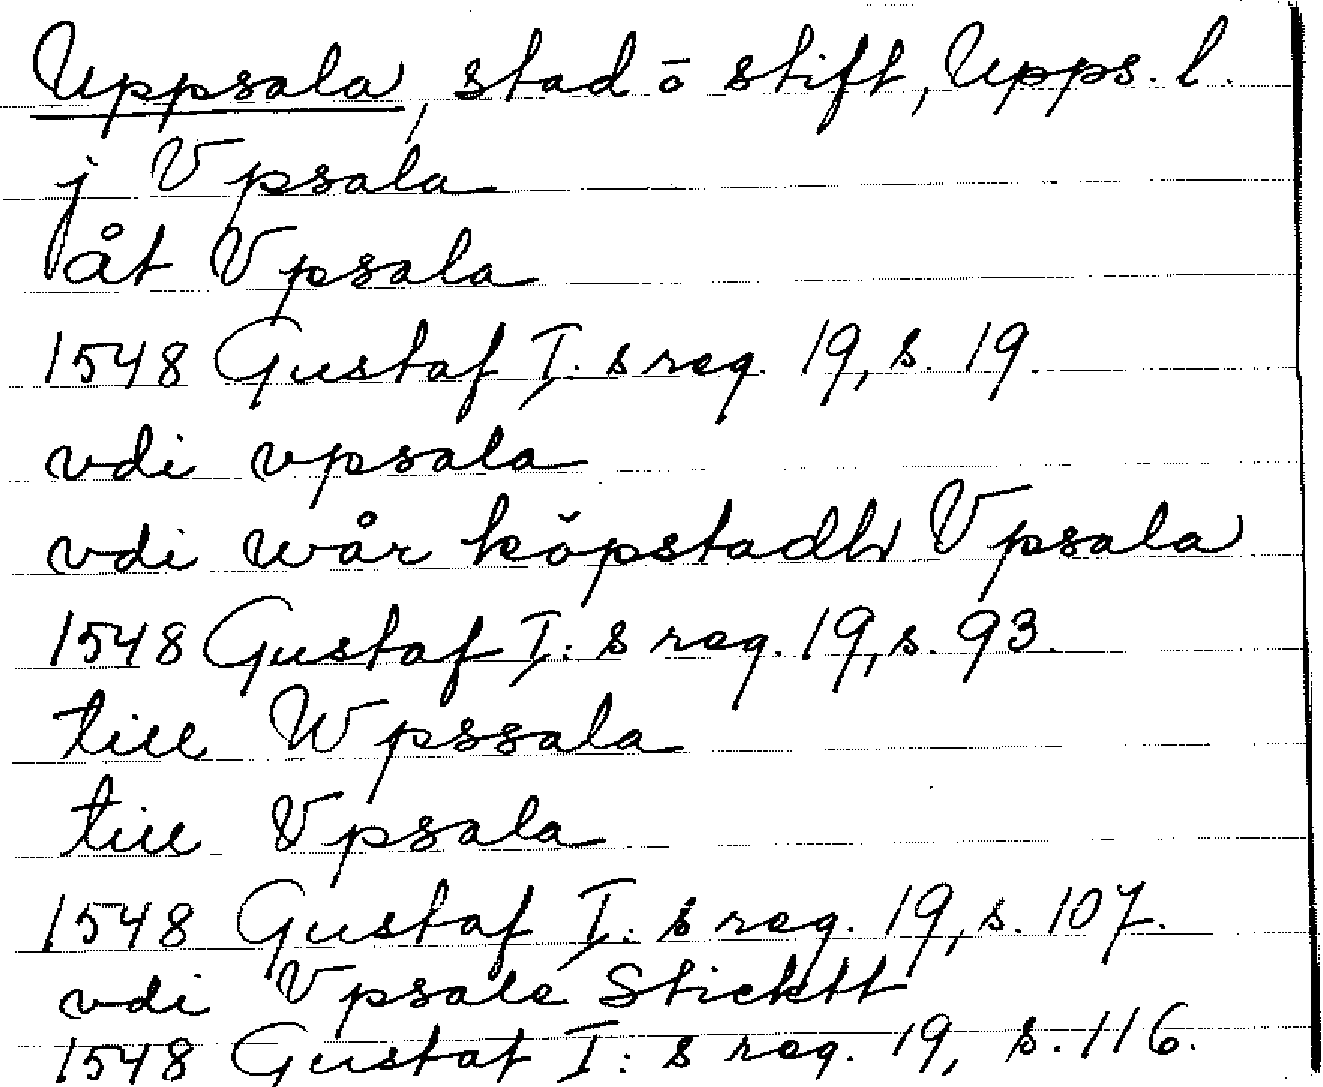 Uppsala, stad o stift, Upps. l.
j Vpsala
åt Vpsala
1548 Gustaf I:s reg. 19, s. 19.
vdi vpsala
vdi wår köpstadh Vpsala
1548 Gustaf I:s reg. 19, s. 93.
till Wpssala
till Vpsala
1548 Gustaf I:s reg. 19, s. 107.
vdi Vpsale Sticktt
1548 Gustaf I:s reg. 19, s. 116.